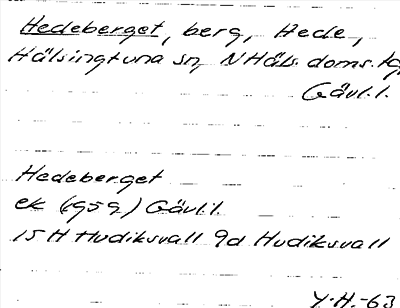 Hedeberget, berg, Hede,
Hälsingtuna sn, NHäls. doms. tg,
Gävl.l.
Hedeberget
ek (1959) Gävl.l.
15H Hudiksvall 9d Hudiksvall
Y.H.-63